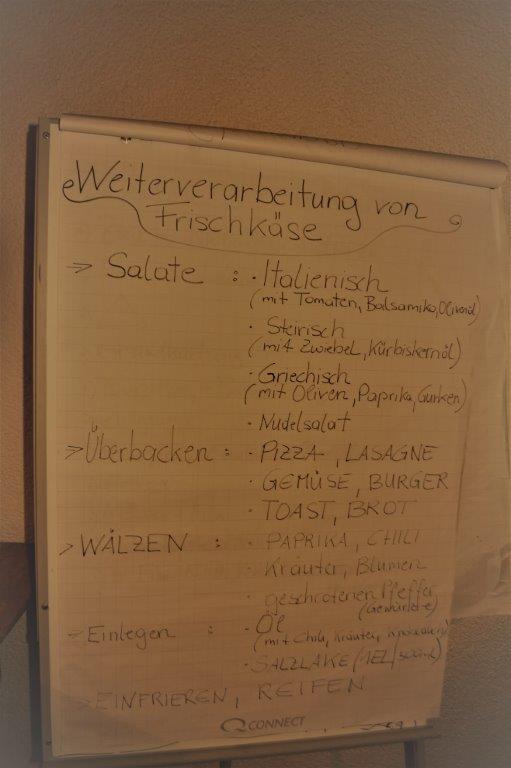 Weiterverarbeitung von
Frischkäse
-> Salate : · Italienisch
(mit Tomaten, Balsamiko, Olivenöl)
· Steirisch
(mit Zwiebel, Kürbiskernöl)
· Griechisch
(mit Oliven, Paprika, Gurken)
· Nudelsalat
-> Überbacken : · PIZZA, LASAGNE
· GEMÜSE, BURGER
· TOAST, BROT
-> WÄLZEN : · PAPRIKA, CHILI
· Kräuter, Blumen
· geschrotenen Pfeffer
-> Einlegen : · Öl
(mit Chili, Kräuter,
· SALZLAKE
-> EINFRIEREN, REIFEN
Q CONNECT